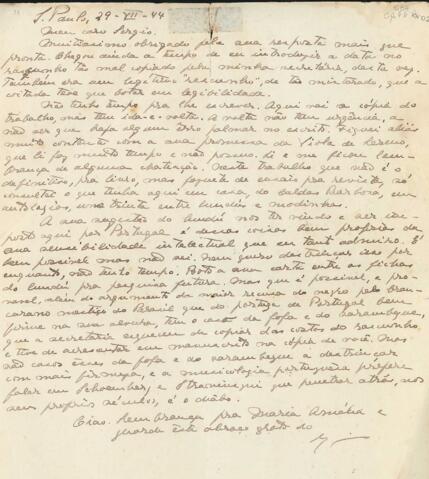 S. Paulo, 29-VII-44
Meu caro Sergio.
Muitíssimo obrigado pela sua resposta mais que
pronta. Chegou ainda a tempo de eu introduzir a data no
rascunho tão mal copiado pela minha secretária, desta vez.
Também era um legítimo "rascunho", de tão misturado, que a
coitada teve que botar em legibilidade.
Não tenho tempo pra lhe escrever. Aqui vai a cópia do
trabalho, mas tem ida-e-volta. A volta não tem urgência, a
não ser que haja algum erro palmar no escrito. Fiquei aliás
muito contente com a sua promessa da Viola de Lereno,
que li faz muito tempo e não possuo. Li e me ficou lem-
brança de alguma chatice. Neste trabalho que não é o
definitivo, pra livro, mas joguete de ensaio pra revista, só
consultei o que tenho aqui em casa, do Caldas Barbosa, em
antologias, uns trinta entre lundús e modinhas.
A sua sugestão do lundú nos ter vindo e ser im-
porto aqui por Portugal é dessas coisas bem próprias da
sua sensibilidade intelectual que eu tanto admiro. É
bem possível mas não sei. Nem quero destrinçar isso por
enquanto, não tenho tempo. Boto a sua carta entre as fichas
do lundú pra pesquisa futura. Mas que é possível, e pro-
vavel, além do argumento da maior recusa do negro pelo bran-
carano mestiço do Brasil que do português de Portugal bem
firme na sua alvura, tem o caso da fofa e do sarambeque,
que a secretária esqueceu de copiar das costas do rascunho,
e tive de acrescentar em manuscrito na cópia de você. Mas
não casos êsses da fofa e do sarambeque a destrinçar
com mais firmeza, e a musicologia portuguesa prefere
falar em Schoenberg e Strawinsqui que penetrar atrás, nos
seus proprios séculos, é o diabo.
Ciao. Lembrança pra Maria Amélia e
guarde êste abraço grato do
M.